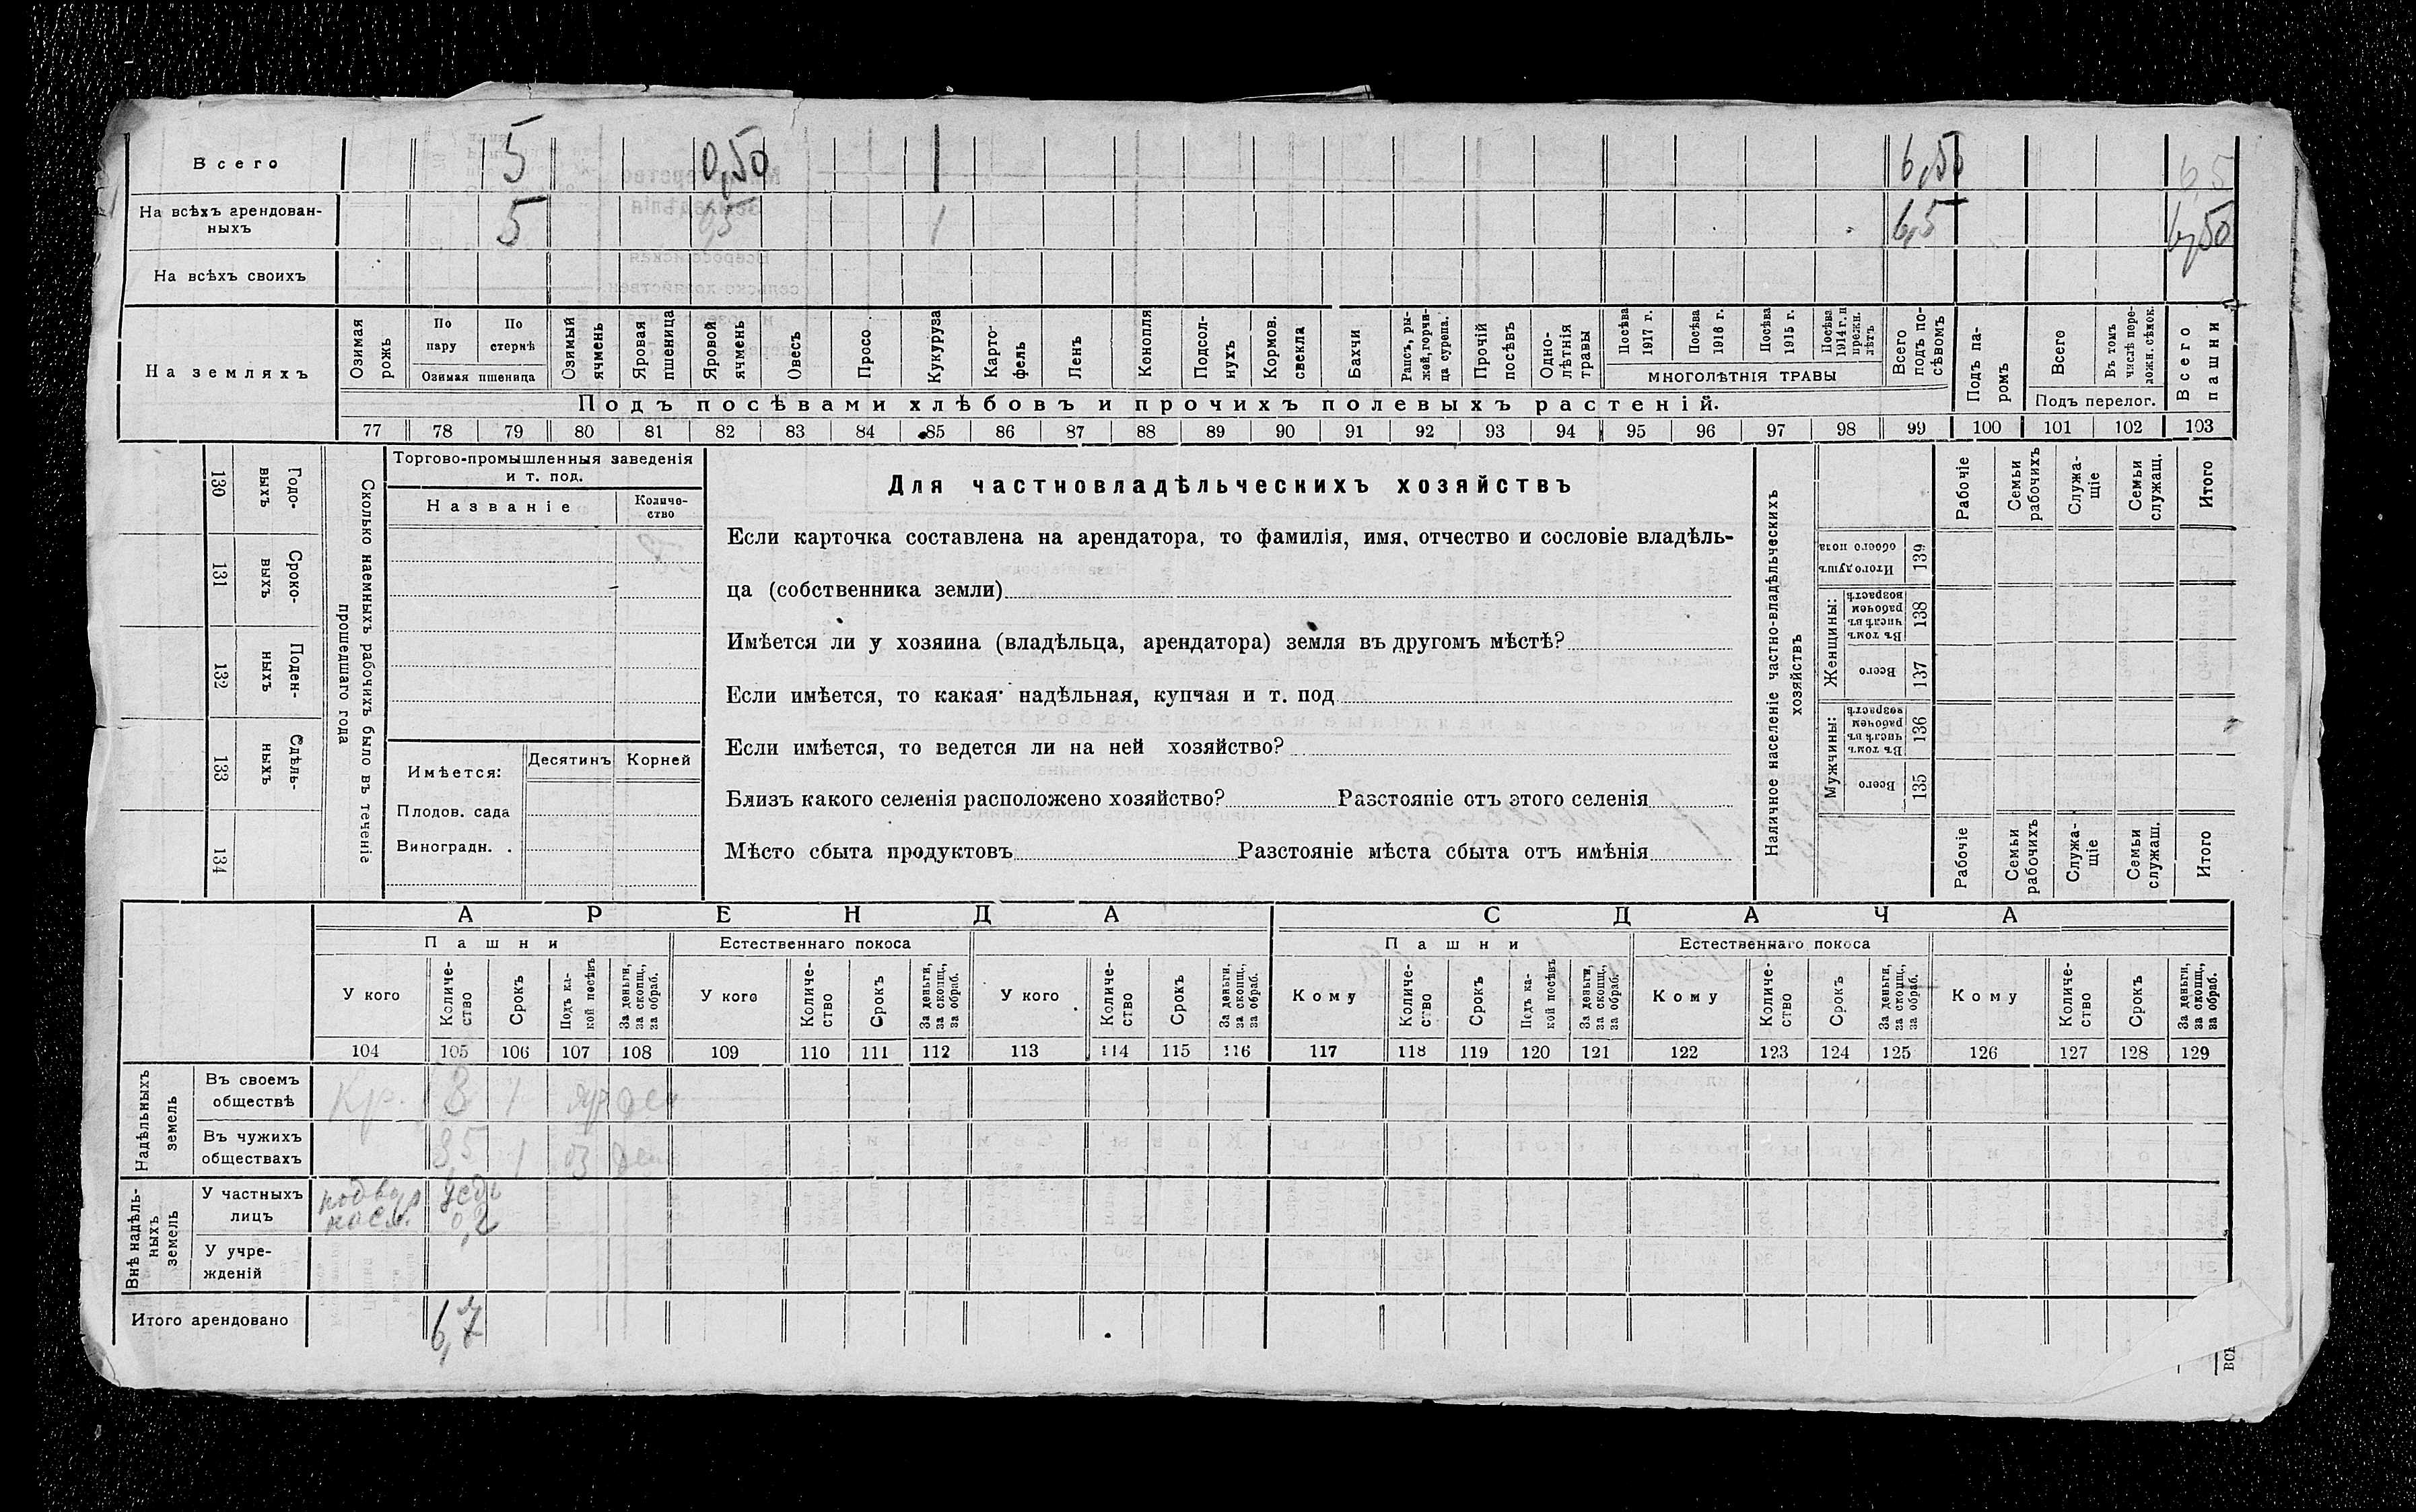 Всего 5 0,50 1 6,50 6,5
На всѣхъ арендован-
ныхъ 5 0,5 1 6,5 6,50
На всѣхъ своихъ
На земляхъ
Озимая рожь
По пару
По стернѣ
Озимая пшеница
Озимый ячмень
Яровая пшеница
Яровой ячмень
Овесъ
Просо
Кукуруза
Карто-
фель
Ленъ
Конопля
Подсол-
нухъ
Кормов. свекла
Бахчи
Рапсъ, ры-
жей, горчи-
ца сурепа.
Прочій посѣвъ
Одно-
лѣтнія травы
Посѣва 1917 г.
Посѣва 1916 г.
Посѣва 1915 г.
Посѣва 1914 г. и прежн. лѣтъ
МНОГОЛѢТНІЯ ТРАВЫ
Всего подъ по-
сѣвомъ
Подъ па-
ромъ
Всего
Въ томъ числѣ пере-
ложн. сѣнок.
Подъ перелог.
Всего пашни
Подъ посѣвами хлѣбовъ и прочихъ полевыхъ растеній.
77 78 79 80 81 82 83 84 85 86 87 88 89 90 91 92 93 94 95 96 97 98 99 100 101 102 103
130 Годо-
выхъ
131 Сроко-
выхъ
132 Поден-
ныхъ
133 Сдѣль-
ныхъ
134
Сколько наемныхъ рабочихъ было въ теченіе
прошедшаго года
Торгово-промышленныя заведенія
и т. под.
Названіе
Количе-
ство
Имѣется:
Десятинъ
Корней
Плодов. сада
Виноградн. .
Для частновладѣльческихъ хозяйствъ
Если карточка составлена на арендатора, то фамилія, имя, отчество и сословіе владѣль-
ца (собственника земли)
Имѣется ли у хозяина (владѣльца, арендатора) земля въ другомъ мѣстѣ?
Если имѣется, то какая· надѣльная, купчая и т. под
Если имѣется, то ведется ли на ней хозяйство?
Близъ какого селенія расположено хозяйство? Разстояніе отъ этого селенія
Мѣсто сбыта продуктовъ Разстояніе мѣста сбыта отъ имѣнія
Наличное населеніе частно-владѣльческихъ
хозяйствъ
Рабочіе
Семьи рабочихъ
Служа-
щіе
Семьи служащ.
Итого
Итого душъ обоего пола 139
Женщины:
Въ томъ числѣ въ рабочемъ возрастѣ 138
Всего 137
Мужчины:
Въ томъ числѣ въ рабочемъ возрастѣ 136
Всего 135
Рабочіе
Семьи рабочихъ
Служа-
щіе
Семьи служащ.
Итого
АРЕНДА
СДАЧА
Пашни
Естественнаго покоса
Пашни
Естественнаго покоса
У кого
Количе-
ство
Срокъ
Подъ ка-
кой посѣвъ
За деньги, за скопщ., за обраб.
У кого
Количе-
ство
Срокъ
За деньги, за скопщ., за обраб.
У кого
Количе-
ство
Срокъ
За деньги, за скопщ., за обраб.
Кому
Количе-
ство
Срокъ
Подъ ка-
кой посѣвъ
За деньги, за скопщ., за обраб.
Кому
Количе-
ство
Срокъ
За деньги, за скопщ., за обраб.
Кому
Количе-
ство
Срокъ
За деньги, за скопщ., за обраб.
104 105 106 107 108 109 110 111 112 113 114 115 116 117 118 119 120 121 122 123 124 125 126 127 128 129
Надѣльныхъ
земель
Въ своемъ
обществѣ Кр. 3 1 яр ден
Въ чужихъ
обществахъ 35 1 оз ден
Внѣ надѣль-
ныхъ
земель
У частныхъ
лицъ
0,2
У учре-
жденій
Итого арендовано 6,7